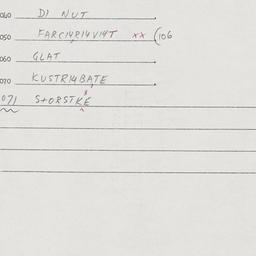 040 DI NUT
050 FARCI4RI4VI4T xx (106
060 GLAT
070 KUSTRI4BATE
071 STORSTKE